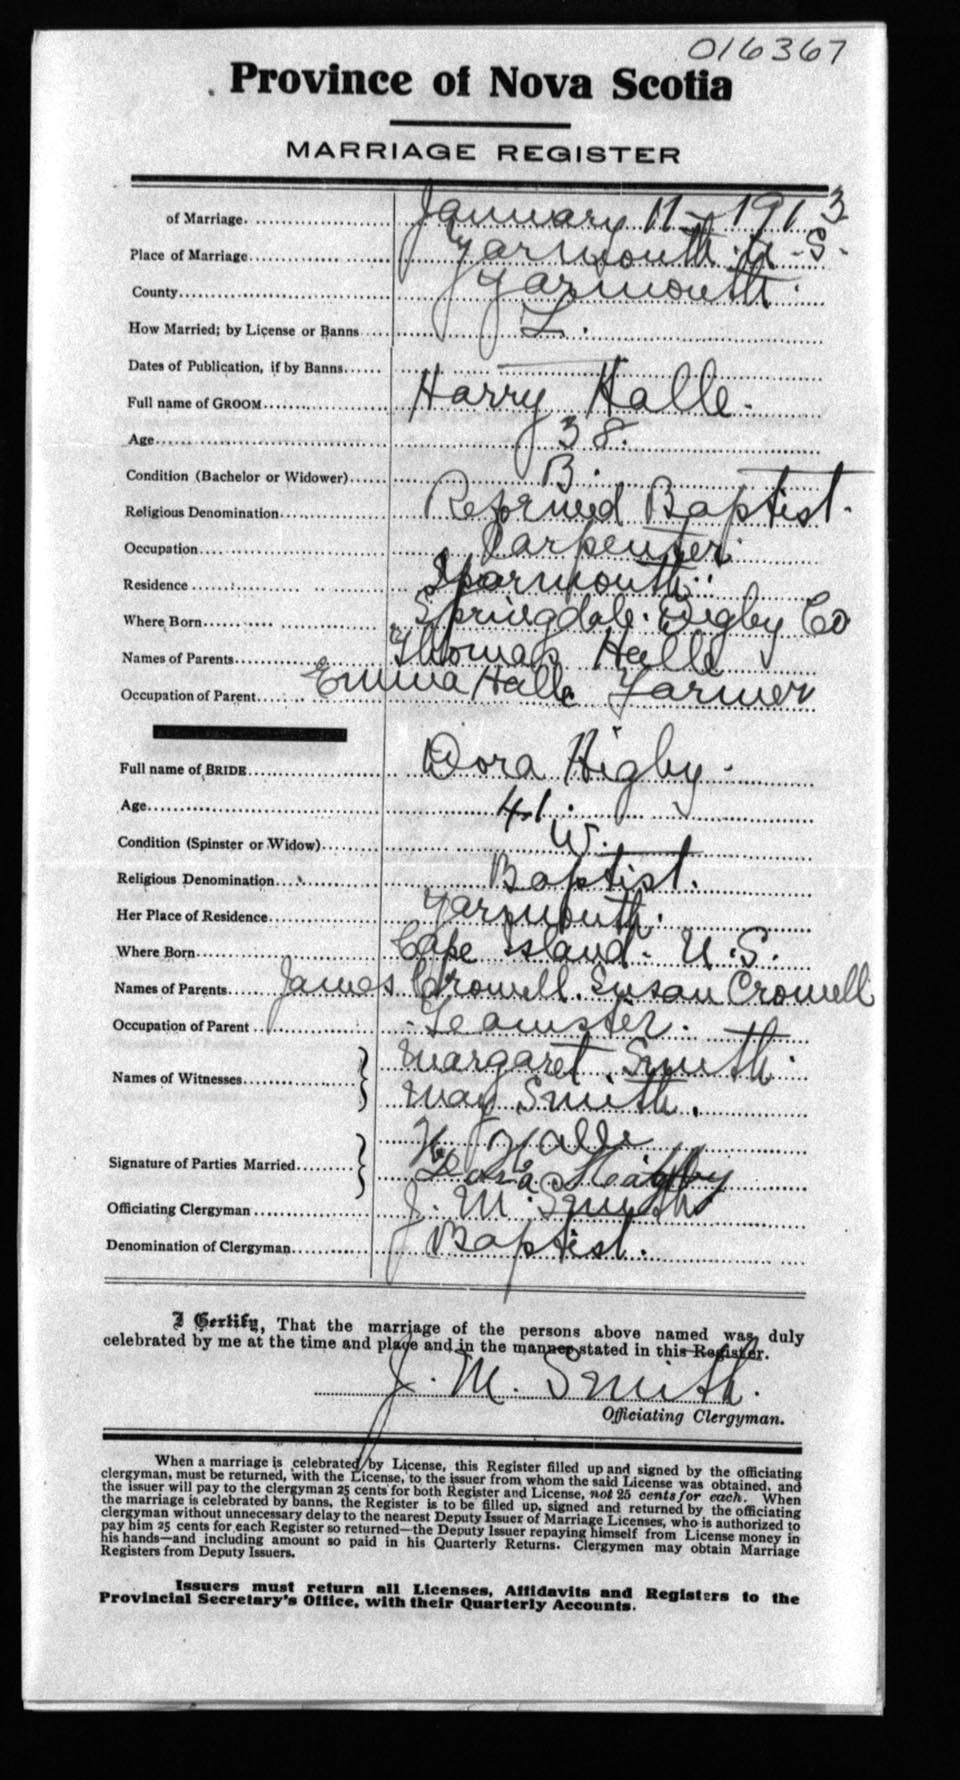 016367
Province of Nova Scotia
MARRIAGE REGISTER
of Marriage. January 11 - 1913
Place of Marriage Yarmouth. N. S.
County Yarmouth.
How Married; by License or Banns L.
Dates of Publication, if by Banns
Full name of GROOM Harry Halle.
Age 38.
Condition (Bachelor or Widower) B.
Religious Denomination Reformed Baptist.
Occupation Carpenter.
Residence Yarmouth.
Where Born Springdale. Digby Co
Names of Parents Thomas Halle
Occupation of Parent Emma Halle Farmer
Full name of BRIDE Dora Higby.
Age 41.
Condition (Spinster or Widow) W.
Religious Denomination Baptist.
Her Place of Residence Yarmouth.
Where Born Cape Island. N. S.
Names of Parents James Crowell. Susan Crowell
Occupation of Parent Teamster.
Names of Witnesses Margaret Smith.
May Smith.
Signature of Parties Married H Halle
Dora Higby
Officiating Clergyman J. M. Smith
Denomination of Clergyman Baptist.
I Certify, That the marriage of the persons above named was duly
celebrated by me at the time and place and in the manner stated in this Register.
J. M. Smith.
Officiating Clergyman.
When a marriage is celebrated by License, this Register filled up and signed by the officiating
clergyman, must be returned, with the License, to the issuer from whom the said License was obtained, and
the issuer will pay to the clergyman 25 cents for both Register and License, not 25 cents for each. When
the marriage is celebrated by banns, the Register is to be filled up, signed and returned by the officiating
clergyman without unnecessary delay to the nearest Deputy Issuer of Marriage Licenses, who is authorized to
pay him 25 cents for each Register so returned—the Deputy Issuer repaying himself from License money in
his hands—and including amount so paid in his Quarterly Returns. Clergymen may obtain Marriage
Registers from Deputy Issuers.
Issuers must return all Licenses, Affidavits and Registers to the
Provincial Secretary's Office, with their Quarterly Accounts.